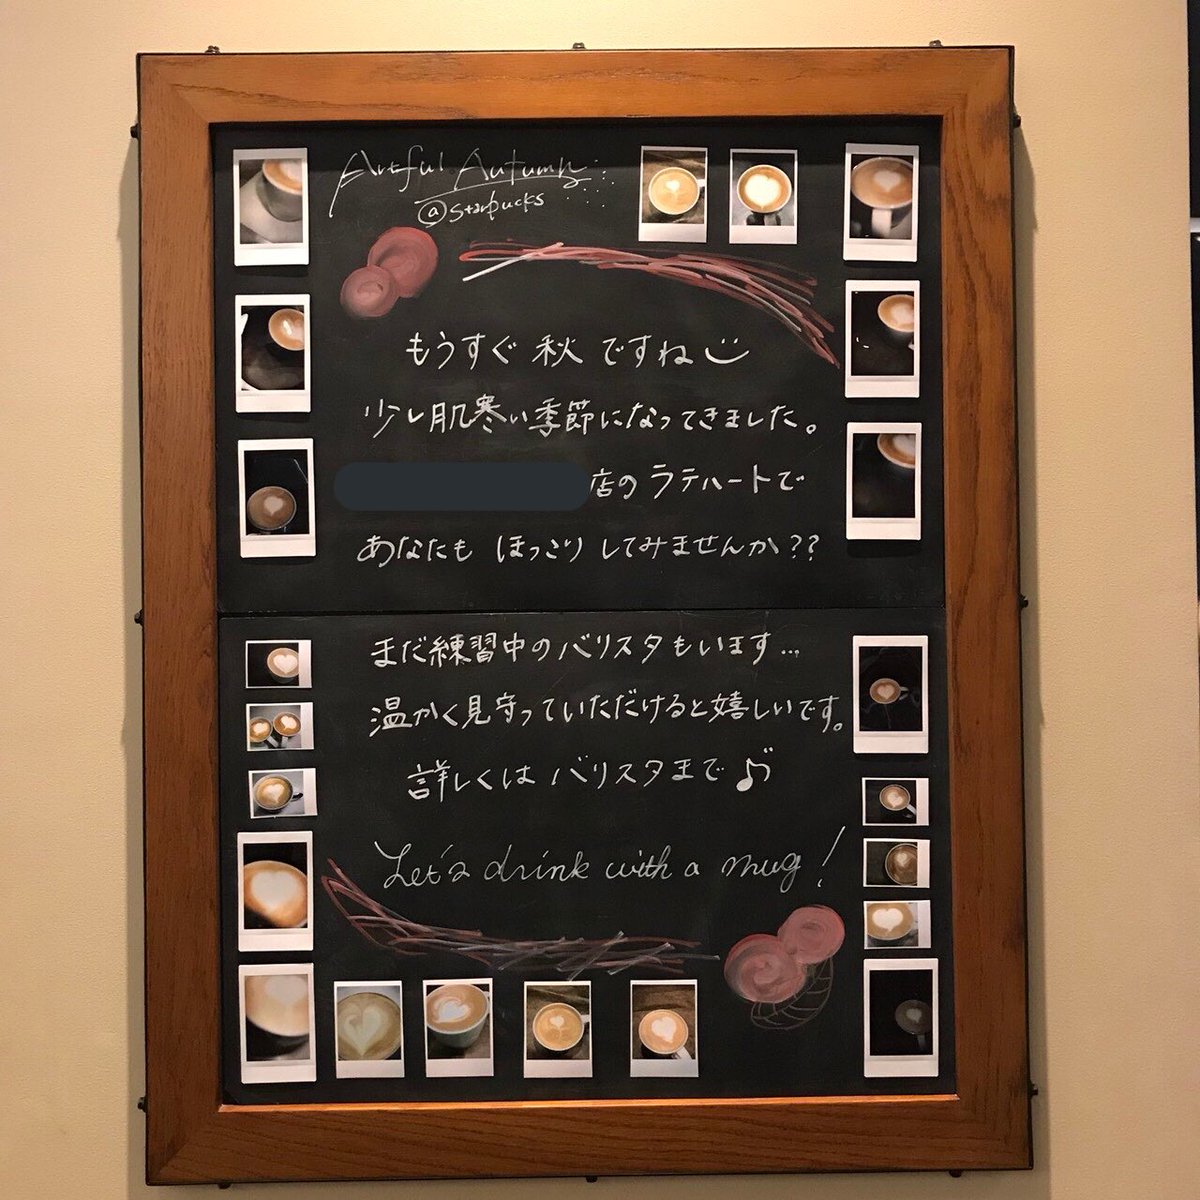 Artful Autumn
@starbucks
もうすぐ秋ですね
少し肌寒い季節になってきました。
店のラテハートで
あなたも ほっこりしてみませんか??
まだ練習中のバリスタもいます...
温かく見守っていただけると嬉しいです。
詳しくはバリスタまで♫
Let's drink with a mug!